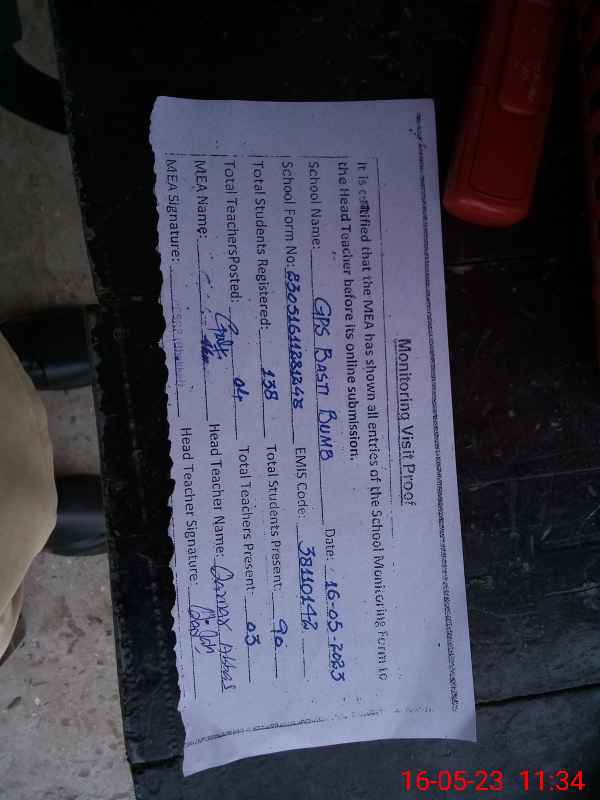 Monitoring Visit Proof
It is certified that the MEA has shown all entries of the School Monitoring Form to
the Head Teacher before its online submission.
School Name: GPS BASTI BUMB Date: 16-05-2023
School Form No: 23051611281248 EMIS Code: 38110142
Total Students Registered: 138 Total Students Present: 90
Total TeachersPosted: 04 Total Teachers Present: 03
MEA Name: Head Teacher Name: Qamar Abbas
MEA Signature: Head Teacher Signature:
16-05-23 11:34